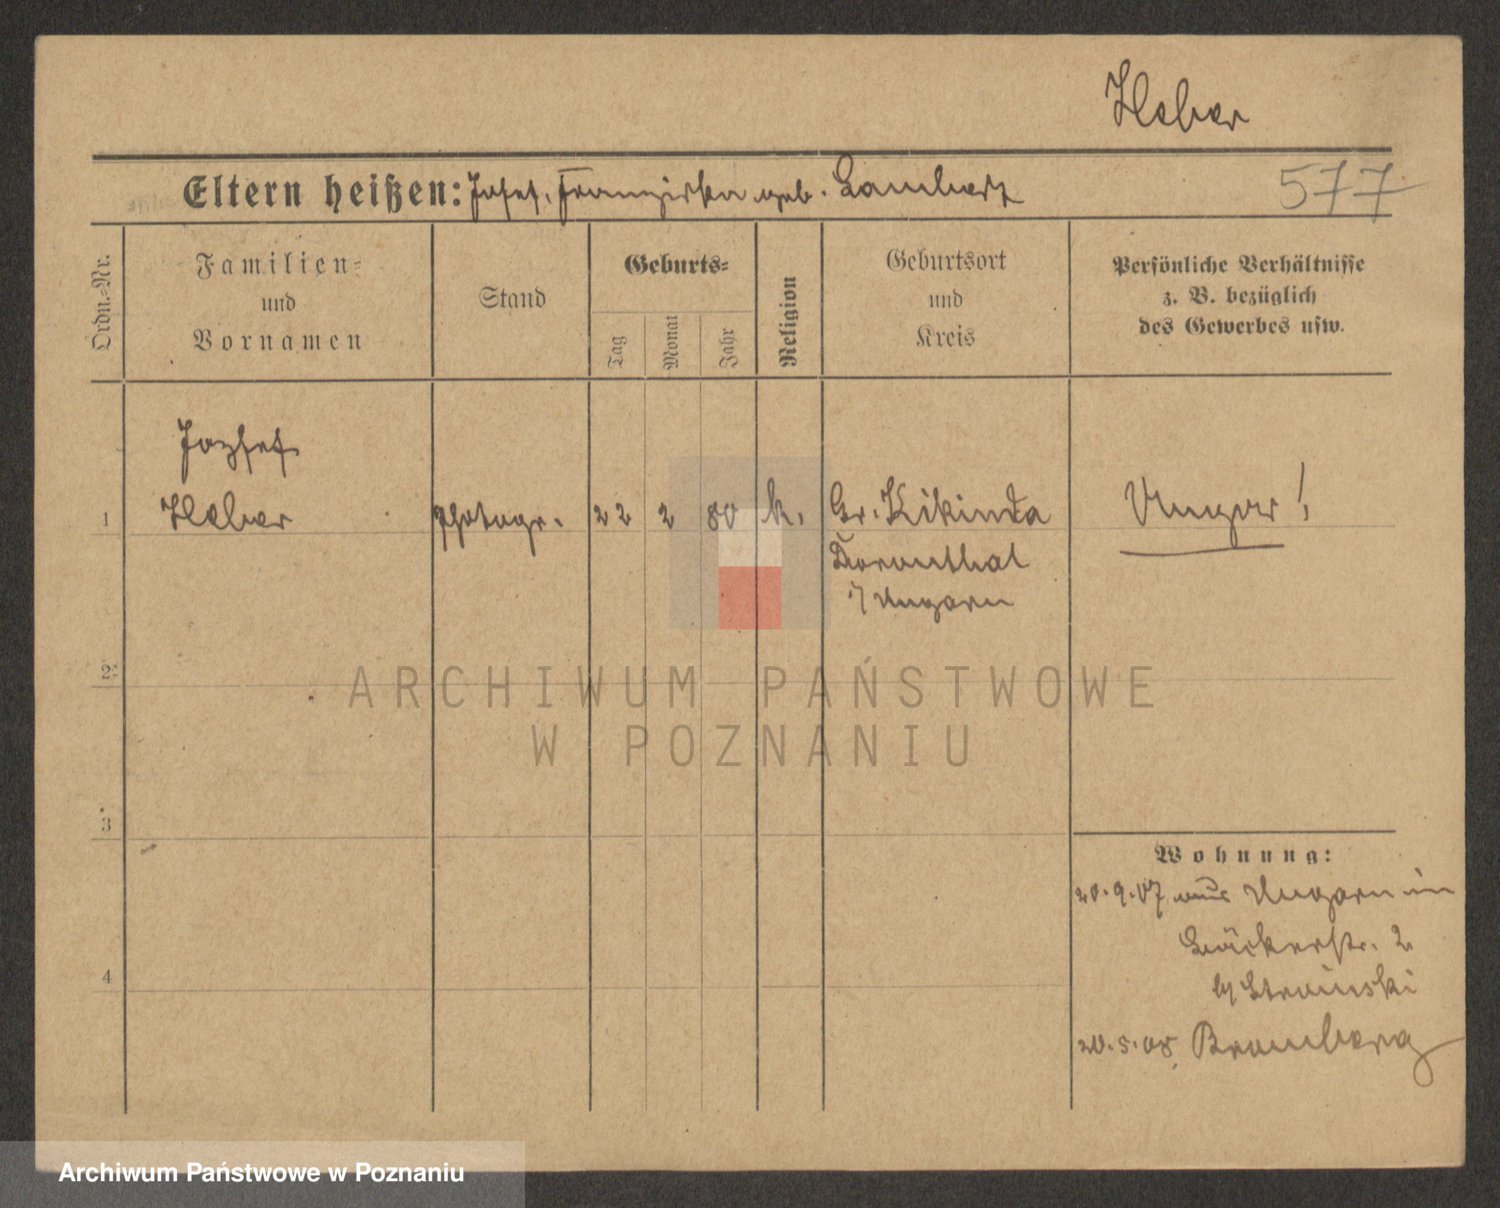 Heber
Eltern heißen: Josef, Franziska geb. Lambertz
577
Ordn.-Nr.
Familien-
und
Vornamen
Stand
Geburts-
Tag
Monat
Jahr
Religion
Geburtsort
und
Kreis
Persönliche Verhältnisse
z. B. bezüglich
des Gewerbes usw.
Jozsef
1 Heber Photogr. 22 2 80 k. Gr. Kikinda Ungar!
Toronthal
i/ Ungarn
2
3
4
Wohnung:
20.9.07 aus Ungarn in
Bäckerstr. 2
b/
20.5.08 Bromberg
ARCHIWUM PAŃSTWOWE
W POZNANIU
Archiwum Państwowe w Poznaniu